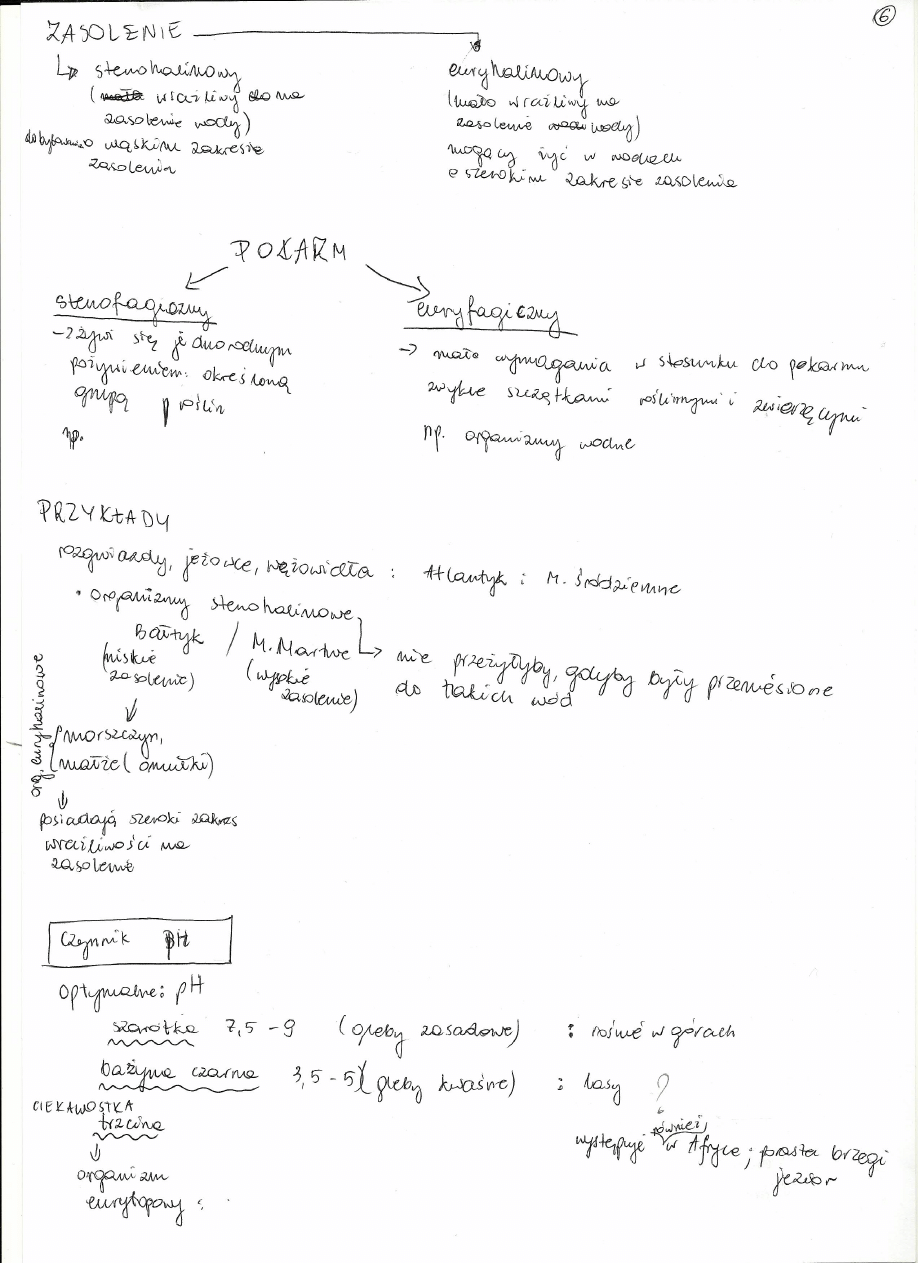 6
ZASOLENIE
stenohalinowy
(wrażliwy na
zasolenie wody)
do bytowania o wąskim zakresie
zasolenia
euryhalinowy
(mało wrażliwy na
zasolenie wody)
mogący żyć w wodach
o szerokim zakresie zasolenia
POKARM
stenofagiczny
- żywi się jednorodnym
pożywieniem: określoną
grupą roślin
np.
euryfagiczny
→ małe wymagania w stosunku do pokarmu
zwykle szczątkami roślinnymi i zwierzęcymi
np. organizmy wodne
PRZYKŁADY
rozgwiazdy, jeżowce, wężowidła : Atlantyk i M. Śródziemne
• organizmy stenohalinowe
Bałtyk / M. Martwe → nie przeżyłyby, gdyby były przeniesione
(niskie zasolenie) (wysokie zasolenie) do takich wód
org. euryhalinowe
morszczyn,
małże (omułki)
posiadają szeroki zakres
wrażliwości na
zasolenie
Czynnik pH
Optymalne: pH
szarotka 7,5 - 9 (gleby zasadowe) : rośnie w górach
bażyna czarna 3,5 - 5 (gleby kwaśne) : lasy ?
CIEKAWOSTKA
trzcina
organizm
eurytopowy :
występuje również w Afryce; porasta brzegi
jezior